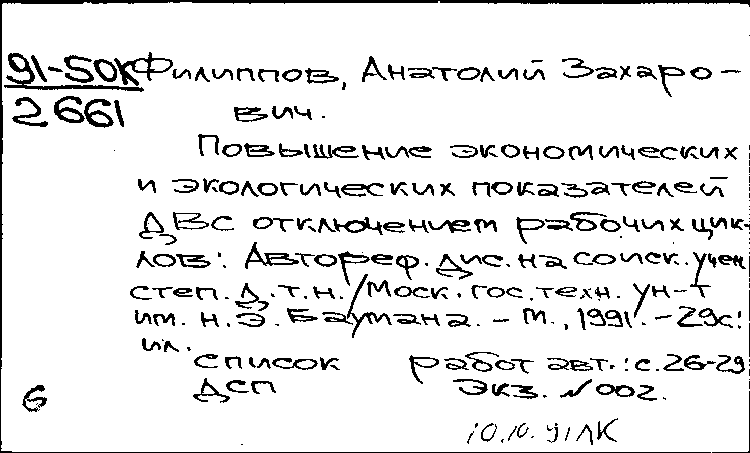 91-50К Филиппов, Анатолий Захаро-
2661 вич.
Повышение экономических
и экологических показателей
ДВС отключением рабочих цик-
лов: Автореф. дис. на соиск. учен
степ. д.т.н./Моск. гос. техн. ун-т
им. Н.Э. Баумана. - М., 1991. - 29с.:
ил.
список работ авт.: с. 26-29
ДСП Экз. №002.
6
10.10.91ЛК